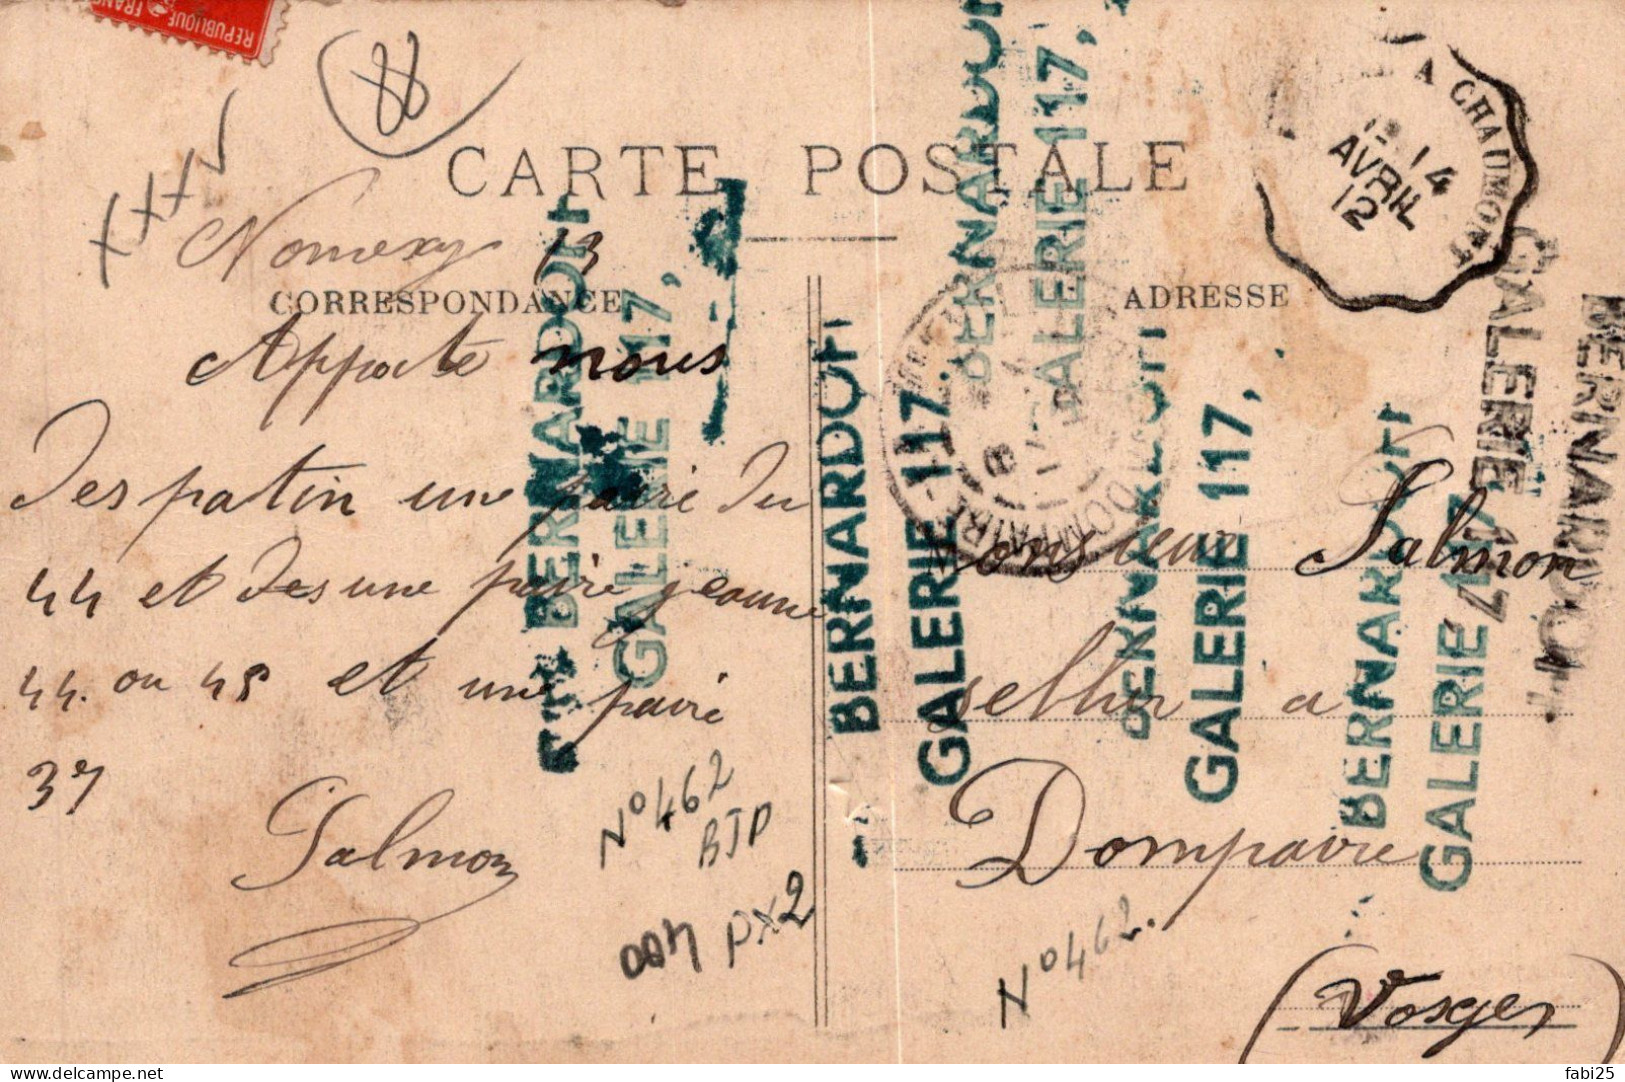 REPUBLIQUE FRANC
88
XXXV
CARTE POSTALE
CORRESPONDANCE
ADRESSE
A CHAUMONT
14
AVRIL
12
Nomexy 13
Apporte nous
des patin une paire du
44 et des une paire geaune
44. ou 45 et une paire
37
Salmon
N° 462
BJP
PX2
DOMPAIRE
Monsieur Salmon
sellier a
Dompaire
(Vosges)
N° 462.
BERNARDOFF
GALERIE 117,
BERNARDOFF
GALERIE 117,
BERNARDOFF
GALERIE 117,
BERNARDOFF
GALERIE 117,
BERNARDOFF
GALERIE 117
BERNARDOFF
GALERIE 117
fabi25